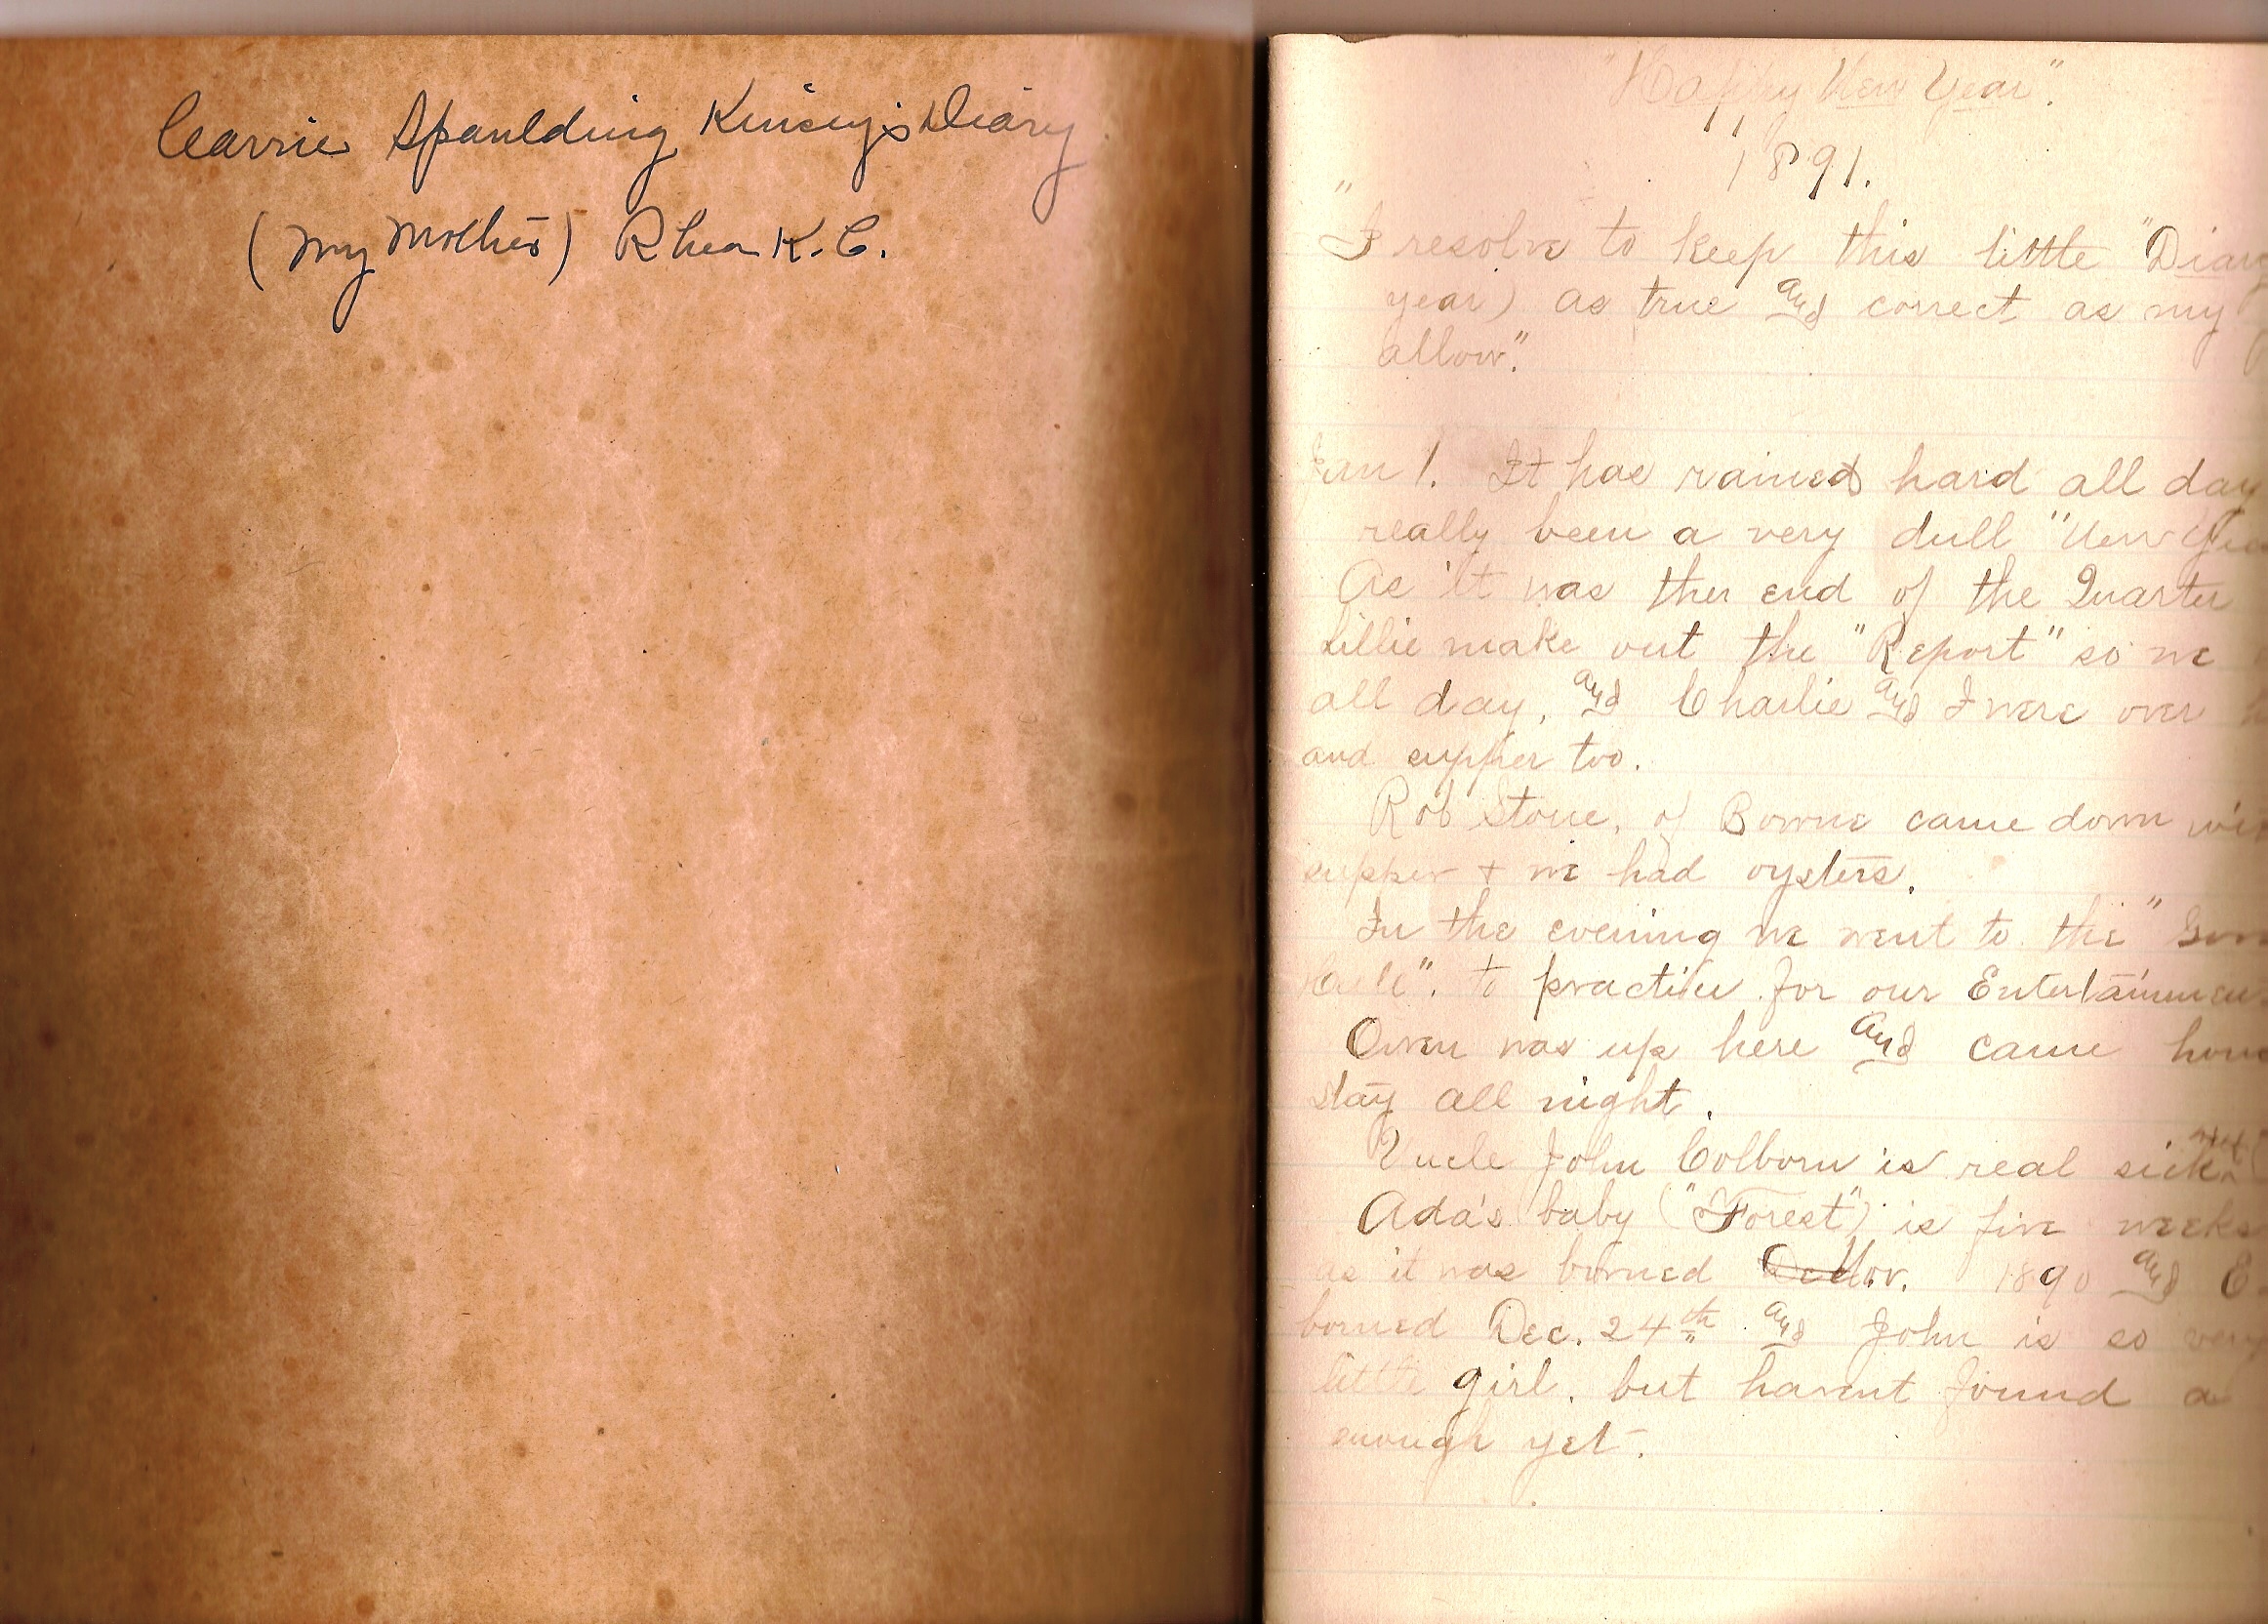 Carrie Spaulding Kinsey's Diary
(My Mother) Rhea K. C.
"Happy New Year".
1891.
"I resolve to keep this little "Diary
year) as true and correct as my
allow".
Jan 1. It has rained hard all day
really been a very dull "New Yea
As it was the end of the Quarter
Lillie make out the "Report" so we
all day, and Charlie and I were over
and supper too.
Rob Stone, of Bowne came down wi
supper + we had oysters.
In the evening we went to the
to practice for our Entertainmen
Owen was up here and came home
stay all night.
Uncle John Colborn is real sick
Ada's baby ("Forest") is five weeks
as it was borned Nov. 1890 and E
borned Dec. 24th and John is so very
little girl. but havent found a
enough yet.